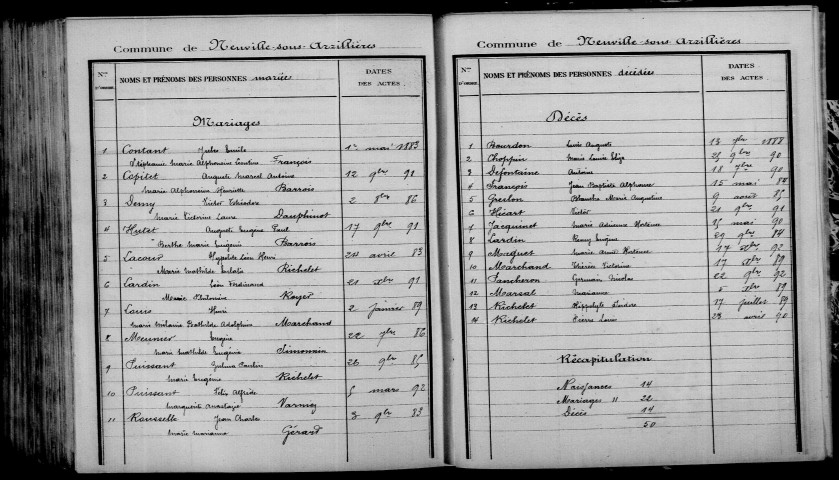 Commune de Neuville-sous-Arzillières
Nos D'ORDRE
NOMS ET PRÉNOMS DES PERSONNES mariées
DATES DES ACTES
Mariages
1 Contant Jules Emile 1er mai 1883
Stéphanie Marie Alphonsine François
2 Capitet Auguste Marcel Antoine 12 9bre 91
Marie Alphonsine Henriette Barrois
3 Demy Victor 2 8bre 86
Marie Victorine Laure Dauphinot
4 Hulet Auguste Eugène Paul 17 9bre 91
Berthe Marie Eugénie Barrois
5 Lacour Hyppolite Léon Henri 24 avril 83
Marie Mathilde Eulalie Richelet
6 Lardin Léon Ferdinand 21 xbre 91
Marie Antoinine Royer
7 Louis Henri 2 janvier 89
Marie Mélanie Bathilde Adolphine Marchand
8 Meunier Eugène 22 7bre 86
Marie Mathilde Eugénie Simonnin
9 Puissant Paulin 26 9bre 85
Marie Eugénie Richelet
10 Puissant Félix Alfred 5 mars 92
Marguerite Varnier
11 Rousselle Jean Charles 3 9bre 83
Marie Marianne Gérard
Commune de Neuville-sous-Arzillières
Nos D'ORDRE
NOMS ET PRÉNOMS DES PERSONNES décédées
DATES DES ACTES
Décès
1 Bourdon Louis Auguste 13 7bre 1888
2 Choppin Marie Louise Elize 25 9bre 90
3 Defontaine Antoine 18 7bre 90
4 François Jean Baptiste Alphonse 15 mai 84
5 Greslon Blanche Marie Augustine 9 août 85
6 Hicart Victor 21 9bre 91
7 Jacquinet Marie Adrienne Hortense 25 mai 90
8 Lardin Remy Eugène 29 9bre 84
9 Miquet Marie Anne Hortense 17 xbre 92
10 Marchand Victorine 17 xbre 89
11 Pancheron Germain Nicolas 22 9bre 92
12 Marsal Marianne 5 xbre 89
13 Richelet Hippolyte Isidore 17 juillet 89
14 Richelet Pierre Louis 23 avril 90
Récapitulation
Naissances 14
Mariages 11 22
Décès 14
50